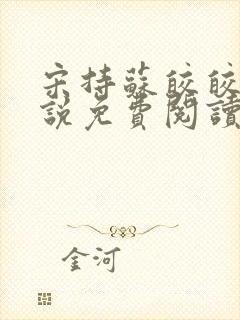 宋持蘇皎皎
說免費閱讀
金河